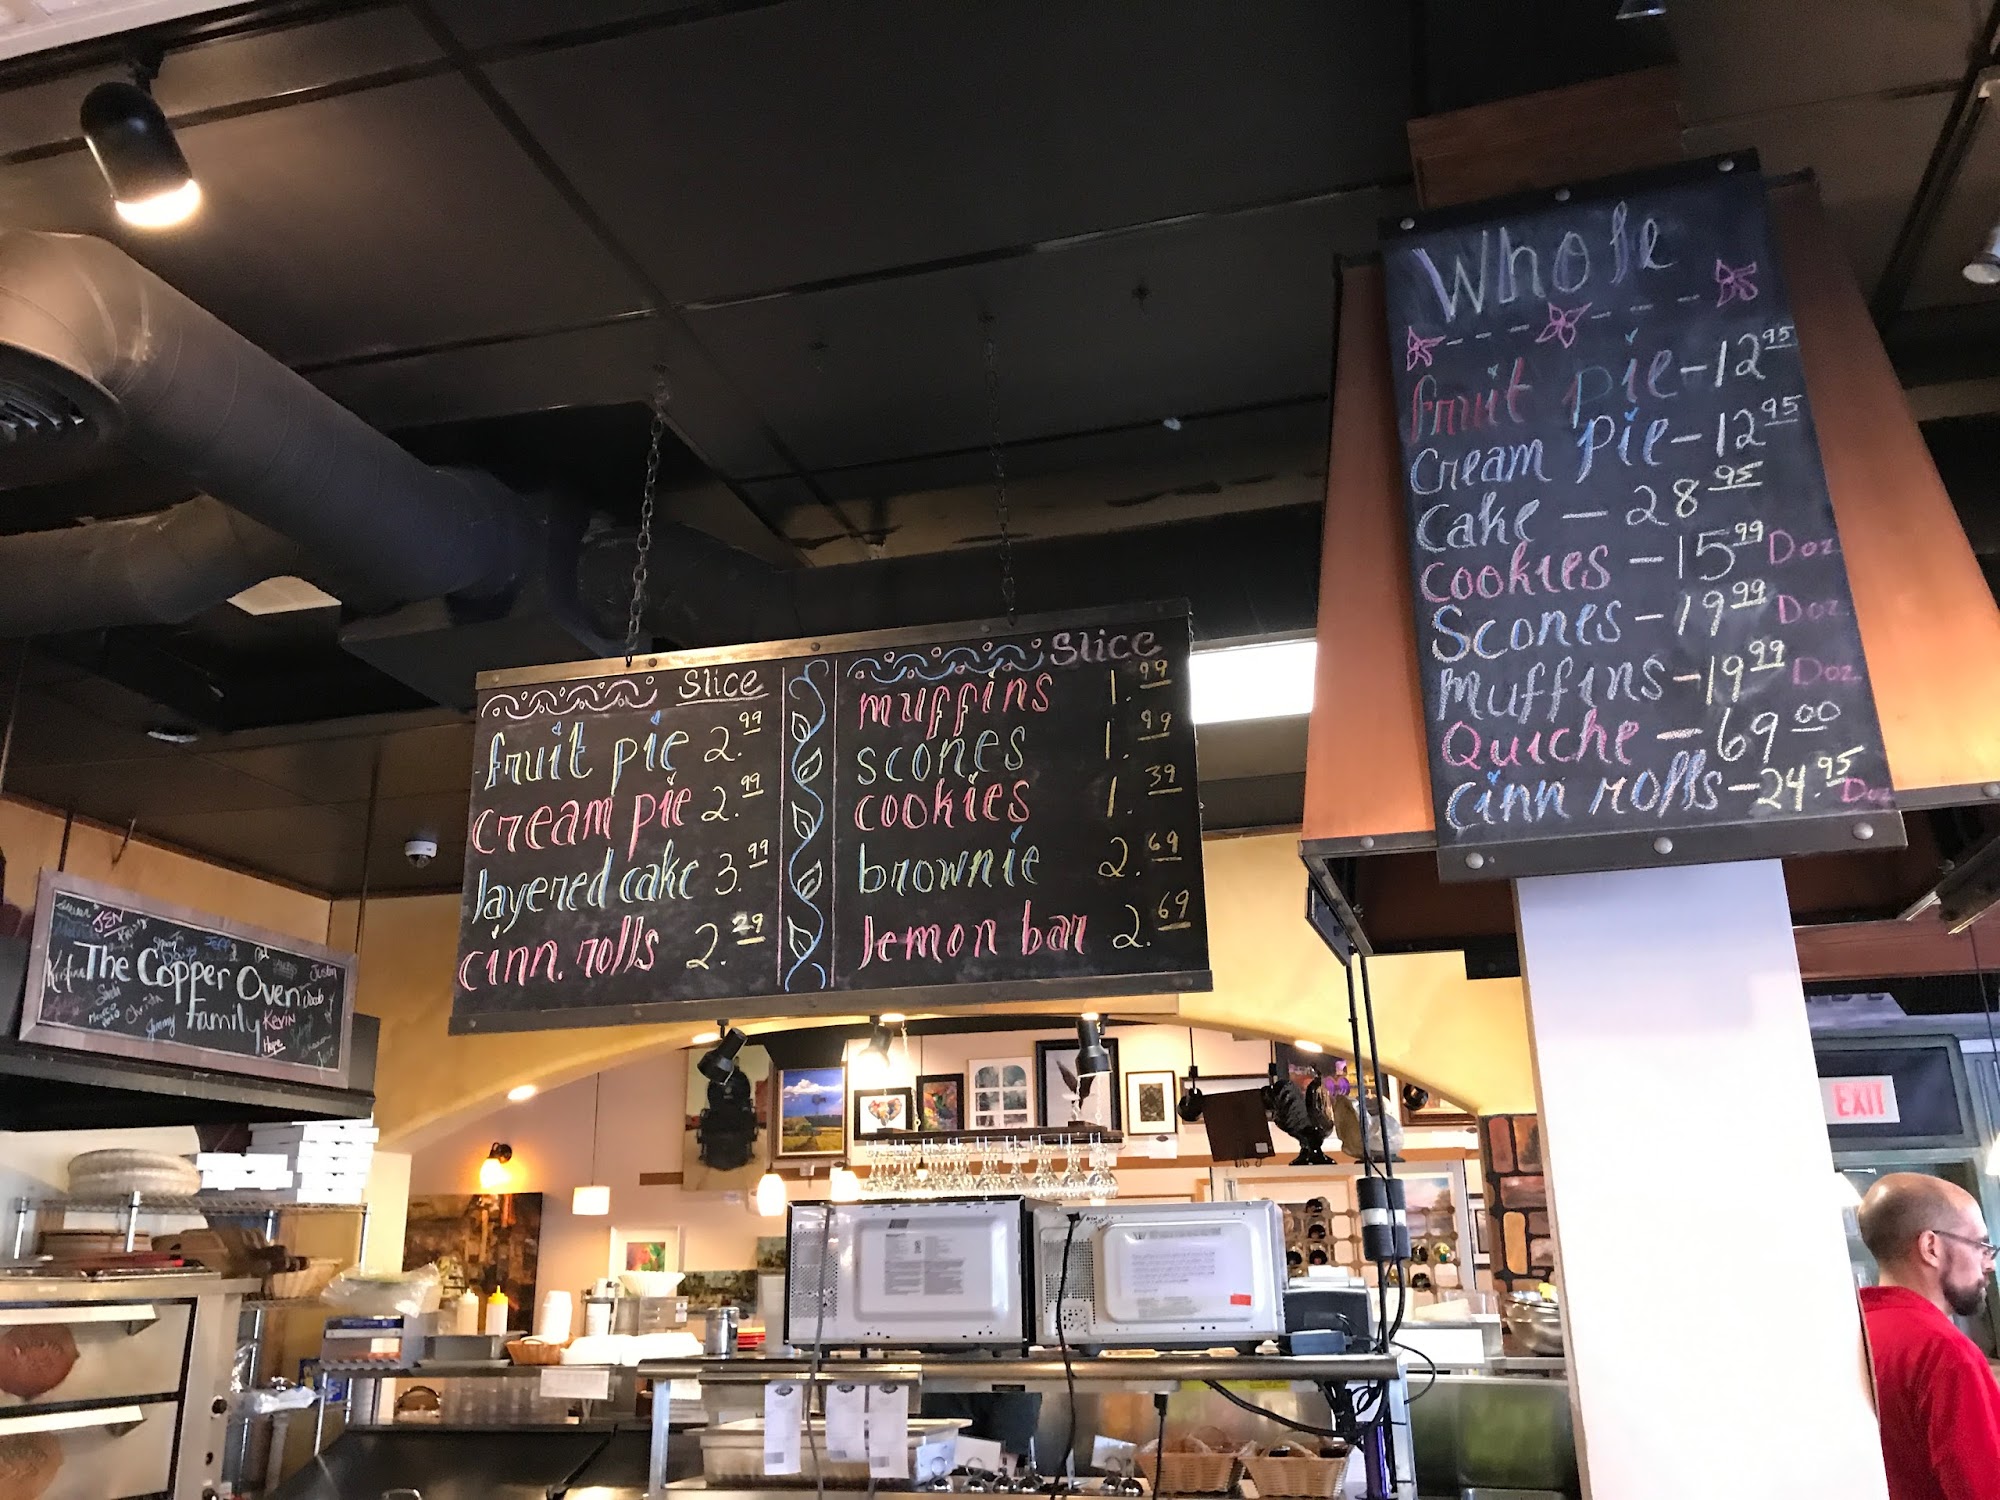 Slice
fruit pie 2.99
cream pie 2.99
layered cake 3.99
cinn. rolls 2.29
Slice
muffins 1.99
scones 1.99
cookies 1.39
brownie 2.69
lemon bar 2.69
Whole
fruit pie - 12 95
Cream pie - 12 95
Cake - 28 95
Cookies - 15 99 Doz
Scones - 19 99 Doz
Muffins - 19 99 Doz
Quiche - 69 00
cinn rolls - 24.95 Doz
JEN
The Copper Oven
Family
Kristina
Justin
Jacob
Kevin
Hope
Christa
Jimmy
EXIT